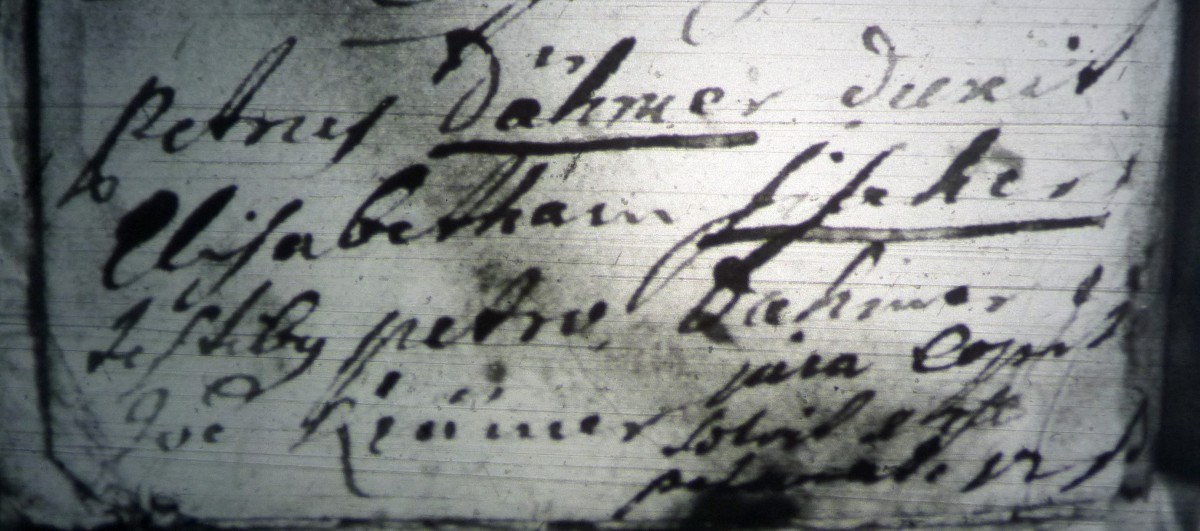 petrus Dähmer duxit
Elisabetham fischer
testibus petro Dähmer et
Joe Krämer
jura copul
solvit